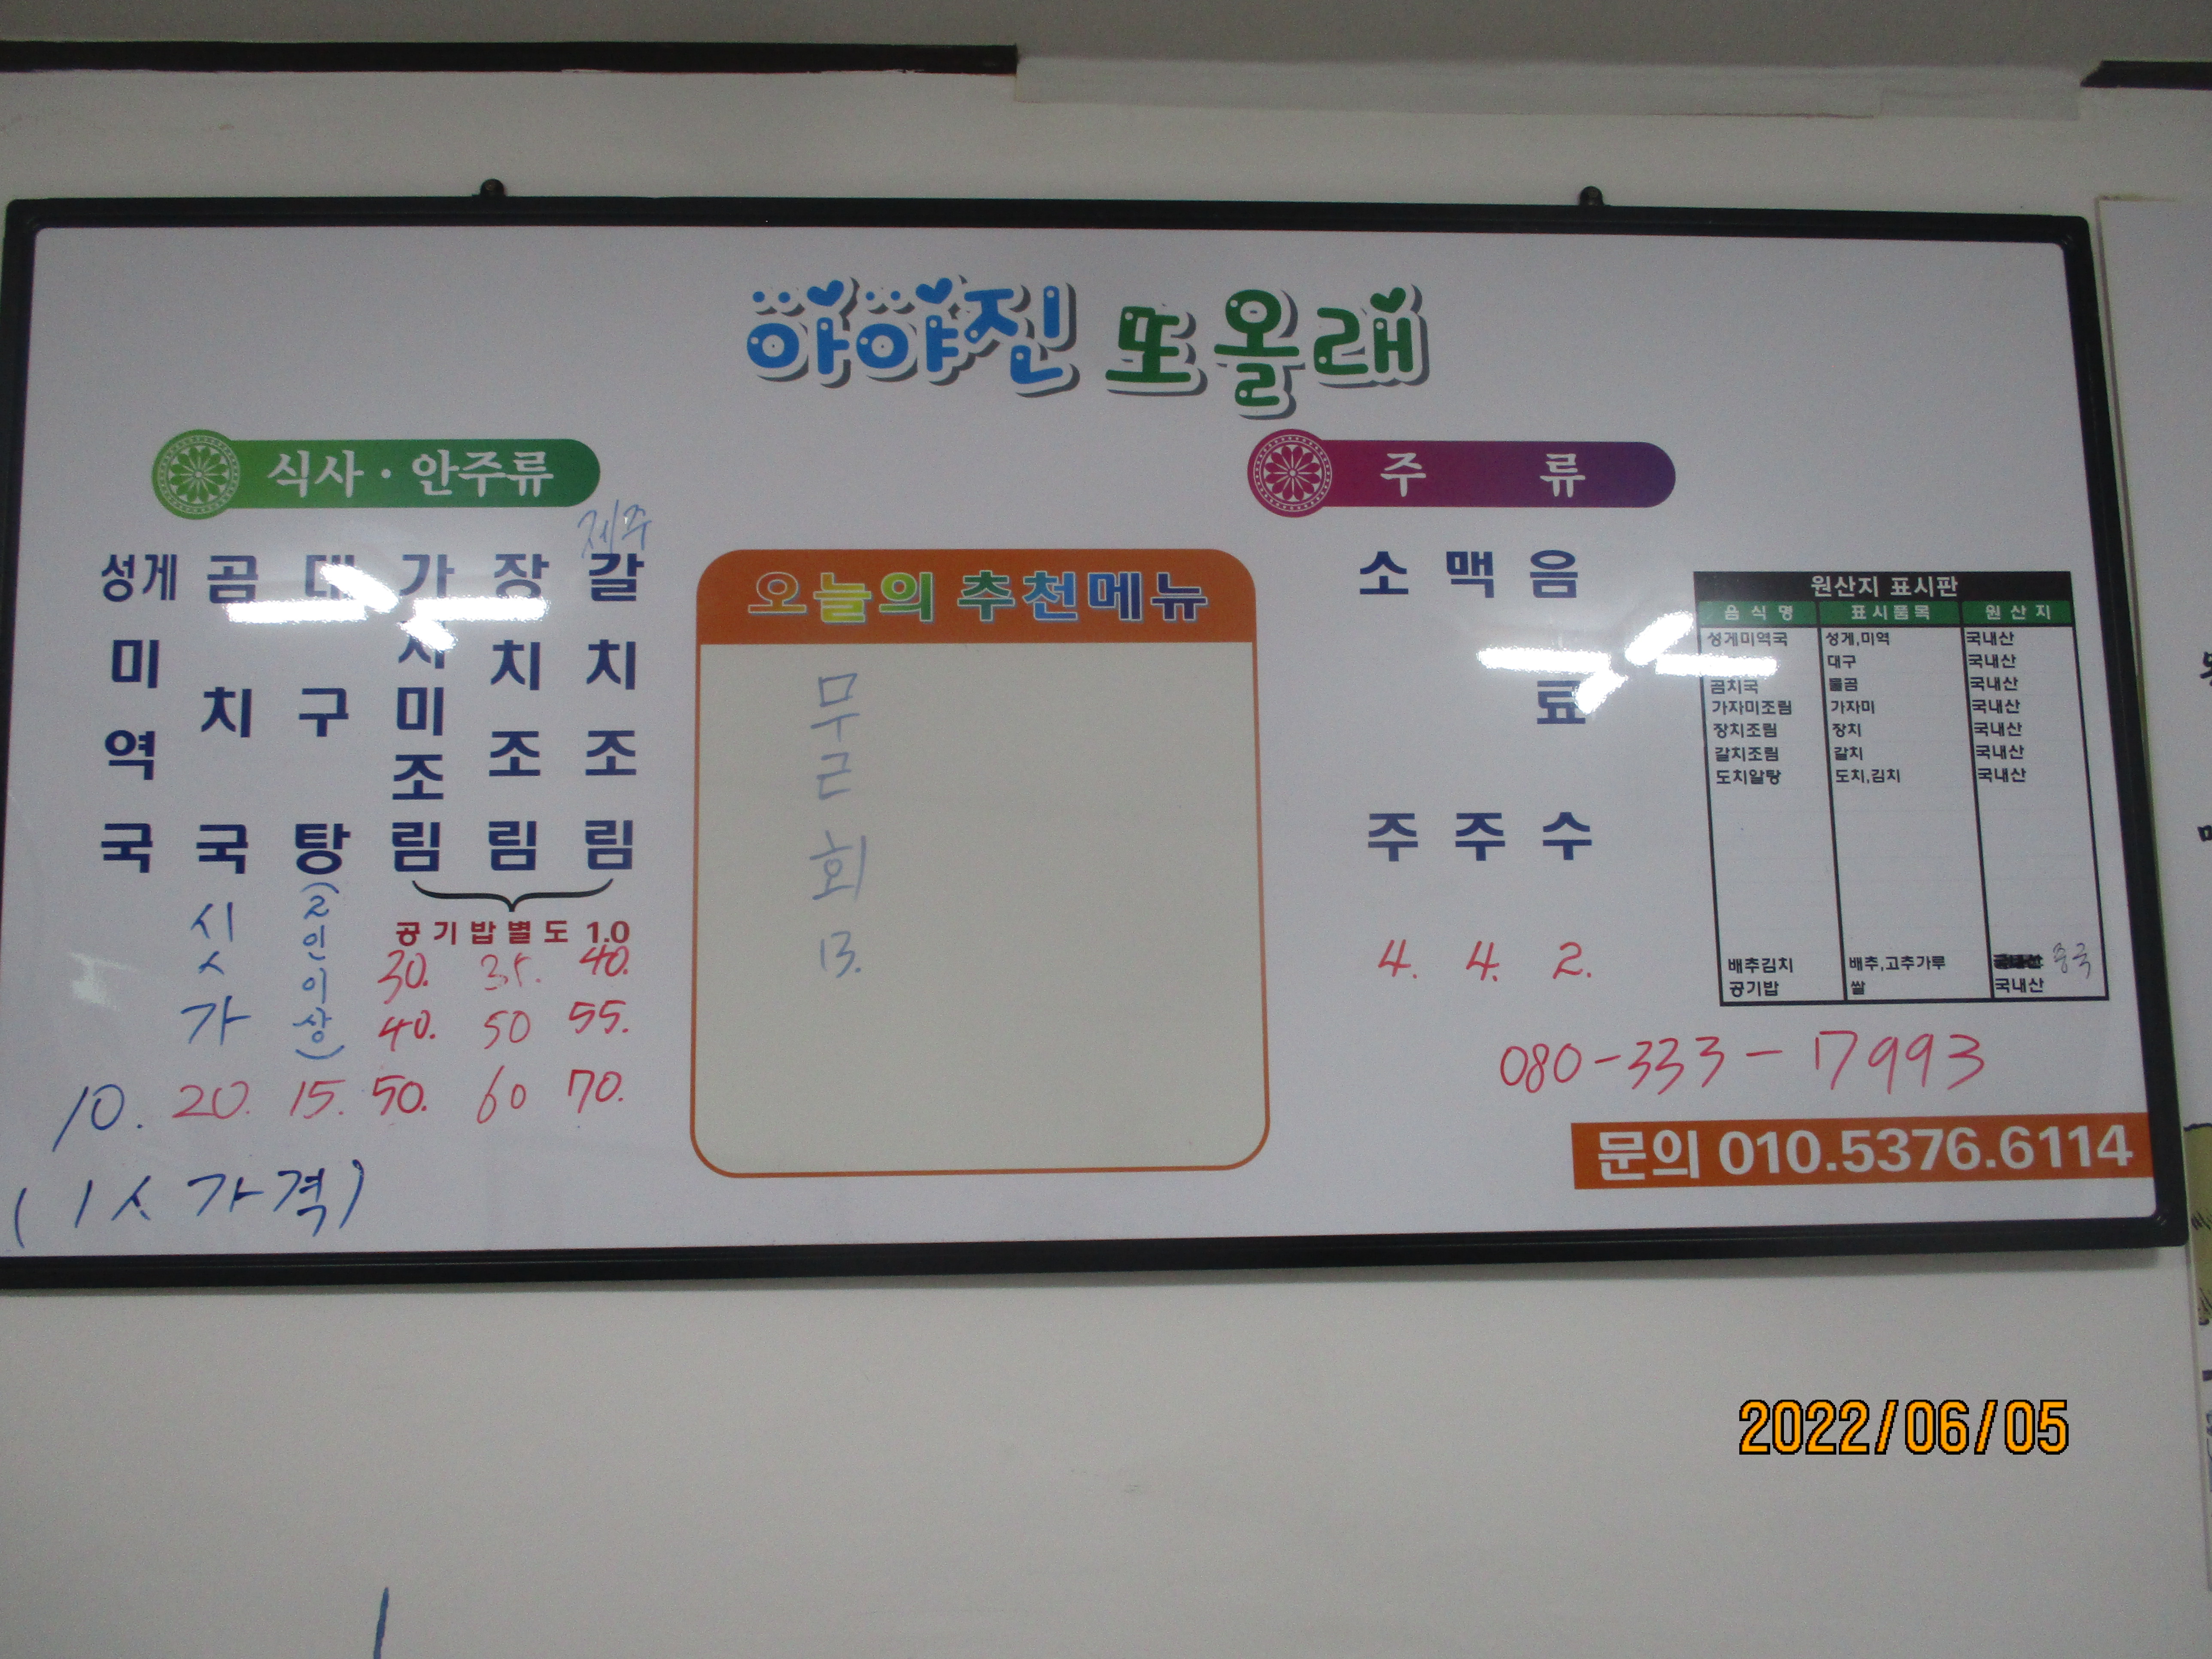 아야진 또올래
식사·안주류
성게미역국
10.
(1人 가격)
곰치국
싯가
20.
대구탕
(2인이상)
15.
가자미조림
30.
40.
50.
장치조림
35.
50
60
제주
갈치조림
40.
55.
70.
공기밥별도 1.0
오늘의 추천메뉴
회
13.
주 류
소주
4.
맥주
4.
음료수
2.
원산지 표시판
음식명 표시품목 원산지
성게미역국 성게,미역 국내산
대구 국내산
곰치국 물곰 국내산
가자미조림 가자미 국내산
장치조림 장치 국내산
갈치조림 갈치 국내산
도치알탕 도치,김치 국내산
배추김치 배추,고추가루 중국
공기밥 쌀 국내산
080-333-17993
문의 010.5376.6114
2022/06/05